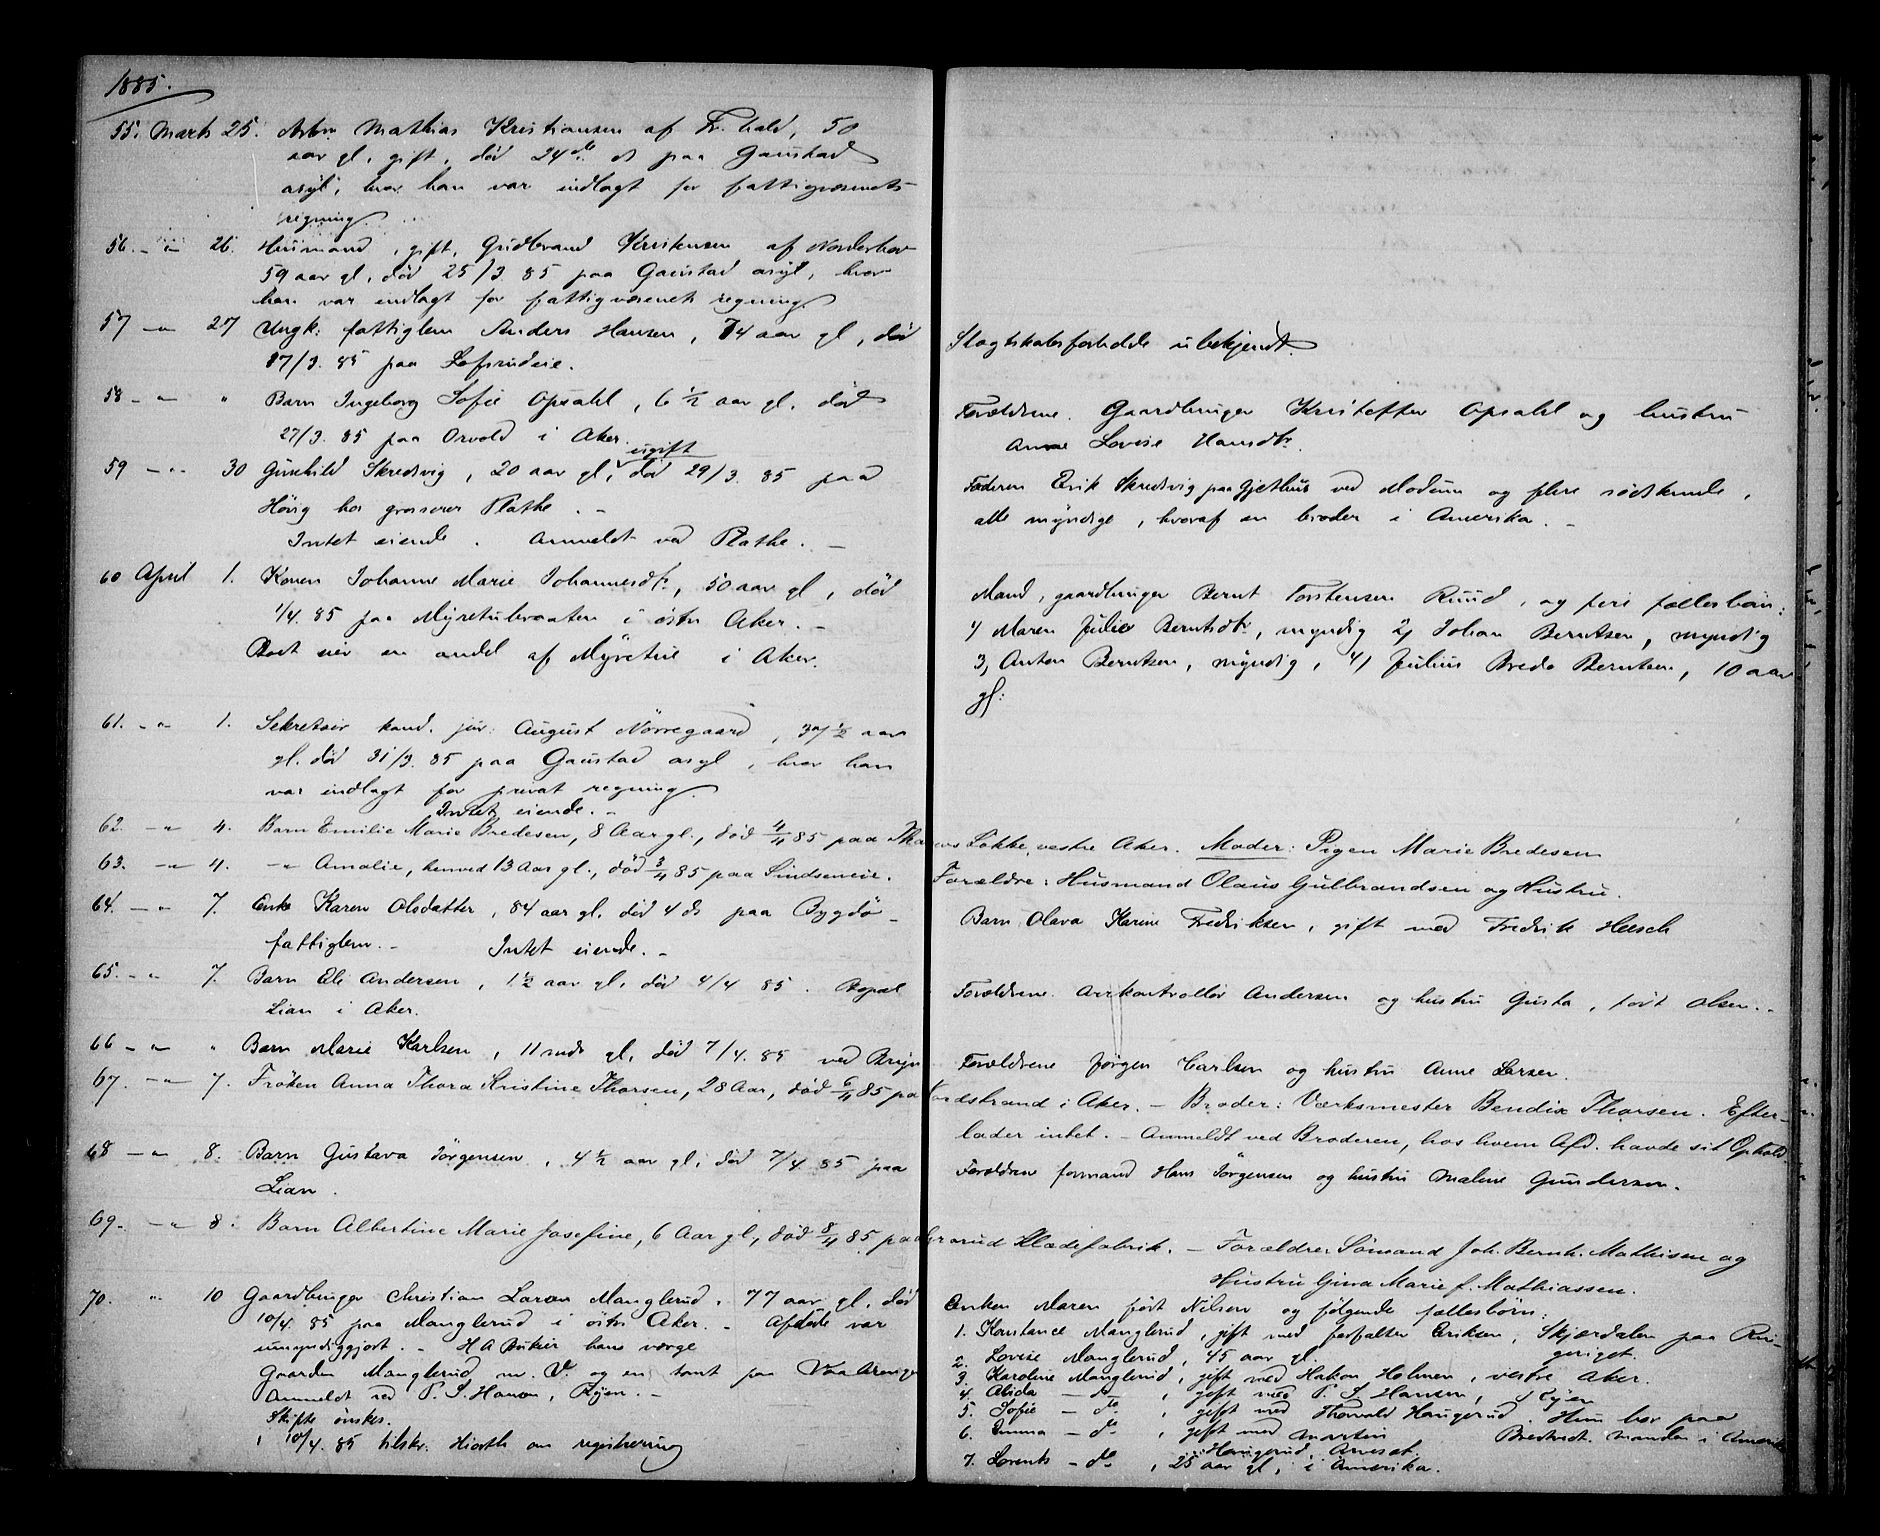 1885.
55. Marts 25. Arbm Mathias Kristiansen af Fr.hald, 50
aar gl, gift, død 24de ds paa Gaustad
asyl, hvor han var indlagt for fattigvæsenets
regning.
56. - " - 26. Husmand, gift, Gudbrand Kristensen af Norderhov
59 aar gl, død 25/3 85 paa Gaustad asyl, hvor
han var indlagt for fattigvæsenets regning.
57 - " - 27 Ungk: fattiglem Anders Hansen, 74 aar gl, død
27/3. 85 paa Lofsrudeie.
Slægtskabsforholde ubekjendt.
58 - " - " Barn Ingeborg Sofie Opsahl, 6 1/2 aar gl. død
27/3. 85 paa Orvold i Aker.
Forældrene. Gaardbruger Kristoffer Opsahl og hustru
Anne Lovise Hansdtr.
59 - " - 30 Gunhild Skredsvig, 20 aar gl, ugift død 29/3. 85 paa
Høvig hos grosserer Plathe. -
Intet eiende. Anmeldt ved Plathe. -
Faderen Erik Skredsvig paa Gjethus ved Modum og flere södskende,
alle myndige, hvoraf en broder i Amerika. -
60 April 1. Konen Johanne Marie Johannesdtr, 50 aar gl, død
1/4. 85 paa Myretubraaten i östre Aker. -
Boet eier en andel af Myretue i Aker.
Mand, gaardbruger Bernt Torstensen Ruud, og fire fællesbörn:
1) Maren Julie Berntsdtr, myndig 2) Johan Berntsen, myndig
3) Anton Berntsen, myndig, 4) Julius Brede Berntsen, 10 aar
gl:
61. - " - 1. Sekretær kand. jur: August Nörregaard, 37 1/2 aar
gl. död 31/3. 85 paa Gaustad asyl, hvor han
var indlagt for privat regning.
Intet eiende. -
62. - " - 4. Barn Emilie Marie Bredesen, 8 Aar gl., död 4/4 85 paa Løkke, vestre Aker. Moder: Pigen Marie Bredesen
63. - " - 4. - " - Amalie, henved 13 Aar gl., död 3/4 85 paa Sindseneie. Forældre: Husmand Olaus Gulbrandsen og Hustru.
64. - " - 7. Enke Karen Olsdatter, 84 aar gl, död 4 ds paa Bygdö -
fattiglem. - Intet eiende. -
Barn Olava Karine Fredriksen, gift med Fredrik Heesch
65. - " - 7. Barn Eli Andersen, 1 1/2 aar gl, död 4/4 85. Bopæl
Lian i Aker.
Forældrene. Andersen og hustru Gusta, födt Olsen. -
66 - " - " Barn Marie Karlsen, 11 mdr gl, död 7/4. 85 ved Bryn
Forældrene Jörgen Carlsen og hustru Anne Larsen.
67. - " - 7. Fröken Anna Thora Kristine Thorsen, 28 Aar, död 6/4 85 paa Nordstrand i Aker. - Broder: Værksmester Bendix Thorsen. Efter-
lader intet. - Anmeldt ved Broderen, hos hvem Afd. havde sit Ophold.
68 - " - 8. Barn Gustava Jörgensen, 4 1/2 aar gl, död 7/4 85 paa
Lian.
Forældrene formand Hans Jörgensen og hustru Malene Gundersen.
69. - " - 8. Barn Albertine Marie Josefine, 6 Aar gl., död 8/4 85 paa Grorud Klædefabrik. - Forældre: Sömand Joh. Bernh. Mathisen og
Hustru Gina Marie f. Mathiassen.
70. " 10 Gaardbruger Christian Larsen Manglerud. 77 aar gl. död
10/4. 85 paa Manglerud i östre Aker. - Afdøde var
umyndiggjort. - H A Bukier hans værge
Gaarden Manglerud og en tomt paa Vaalerengen
Anmeldt ved P. I. Hansen, Ryen. -
Skifte önskes.
10/4. 85 tilskr. Hiorth om registrering
Enken Maren född Nilsen og fölgende fællesbörn:
1. Konstance Manglerud, gift med forfalter Eriksen, Skjærdalen paa Rin-
geriget.
2. Lovise Manglerud, 45 aar gl.
3. Karoline Manglerud, gift med Hakon Holmen, vestre Aker.
4. Alida - do - , gift med P. I. Hansen, Ryen
5. Sofie - do , gift med Thorvald Haugerud. Hun bor paa
Bredtvedt. manden i Amerika
6. Emma - do , gift med Martin
Haugerud,
7. Lorents - do , 25 aar gl, i Amerika.